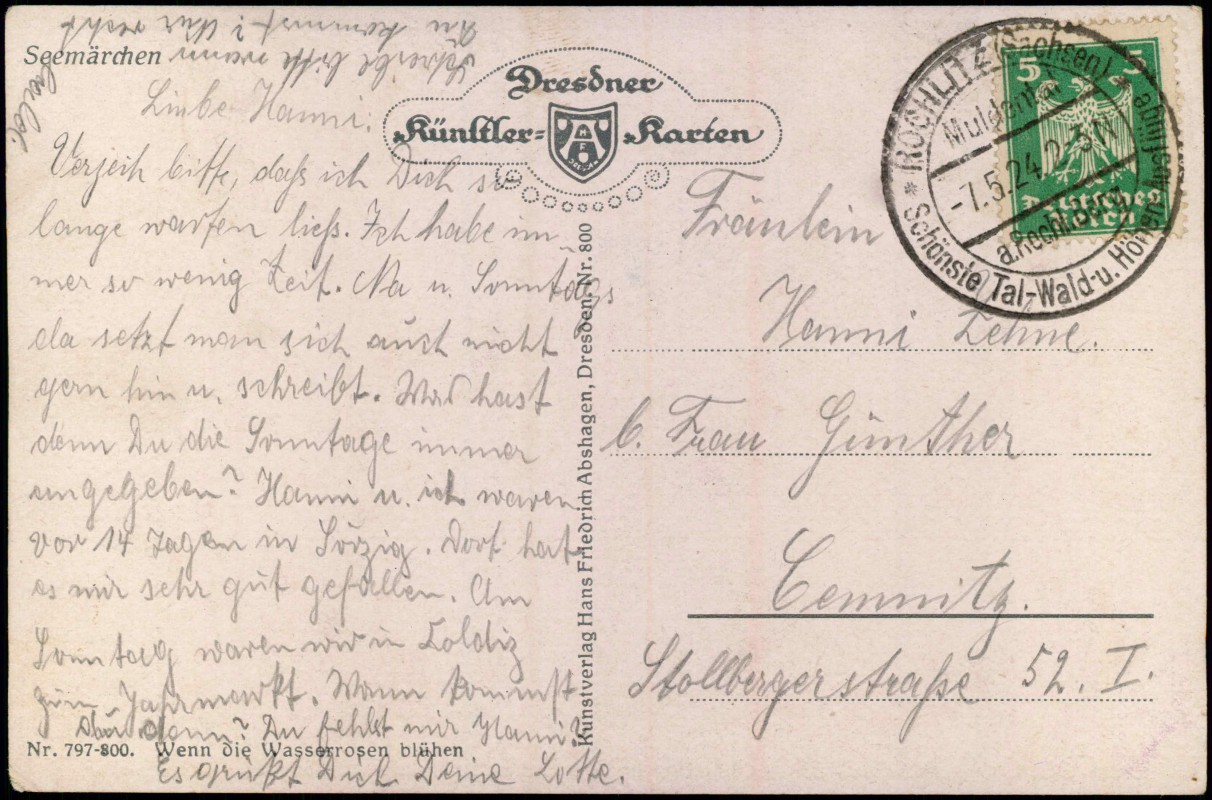 Seemärchen
Liebe Hanni.
Verzeih bitte, daß ich Dich so
lange warten ließ. Ich habe im-
mer so wenig Zeit. Na u. Sonntags
da setzt man sich auch nicht
gern hin u. schreibt. Was hast
denn Du die Sonntage immer
angegeben? Hanni u. ich waren
vor 14 Tagen in Sörzig. Dort hat
es mir sehr gut gefallen. Am
Sonntag waren wir in Colditz
zum Jahrmarkt. Wann kommst
Du denn? Du fehlst mir Hanni?
Es grüßt Dich Deine Lotte.
Schreibe bitte wann
Du kommst? Nur recht
bald.
Nr. 797-800. Wenn die Wasserrosen blühen
Dresdner
Künstler-Karten
Kunstverlag Hans Friedrich Abshagen, Dresden. Nr. 800
ROCHLITZ (Sachsen)
Muldental
-7.5.24.2-3N
a.Rochl.Berg
Schönste Tal-Wald-u. Höhen
5 5
Deutsches
Reich
Fräulein
Hanni Zehne.
b. Frau Günther
Cemnitz.
Stollbergerstraße 52. I.